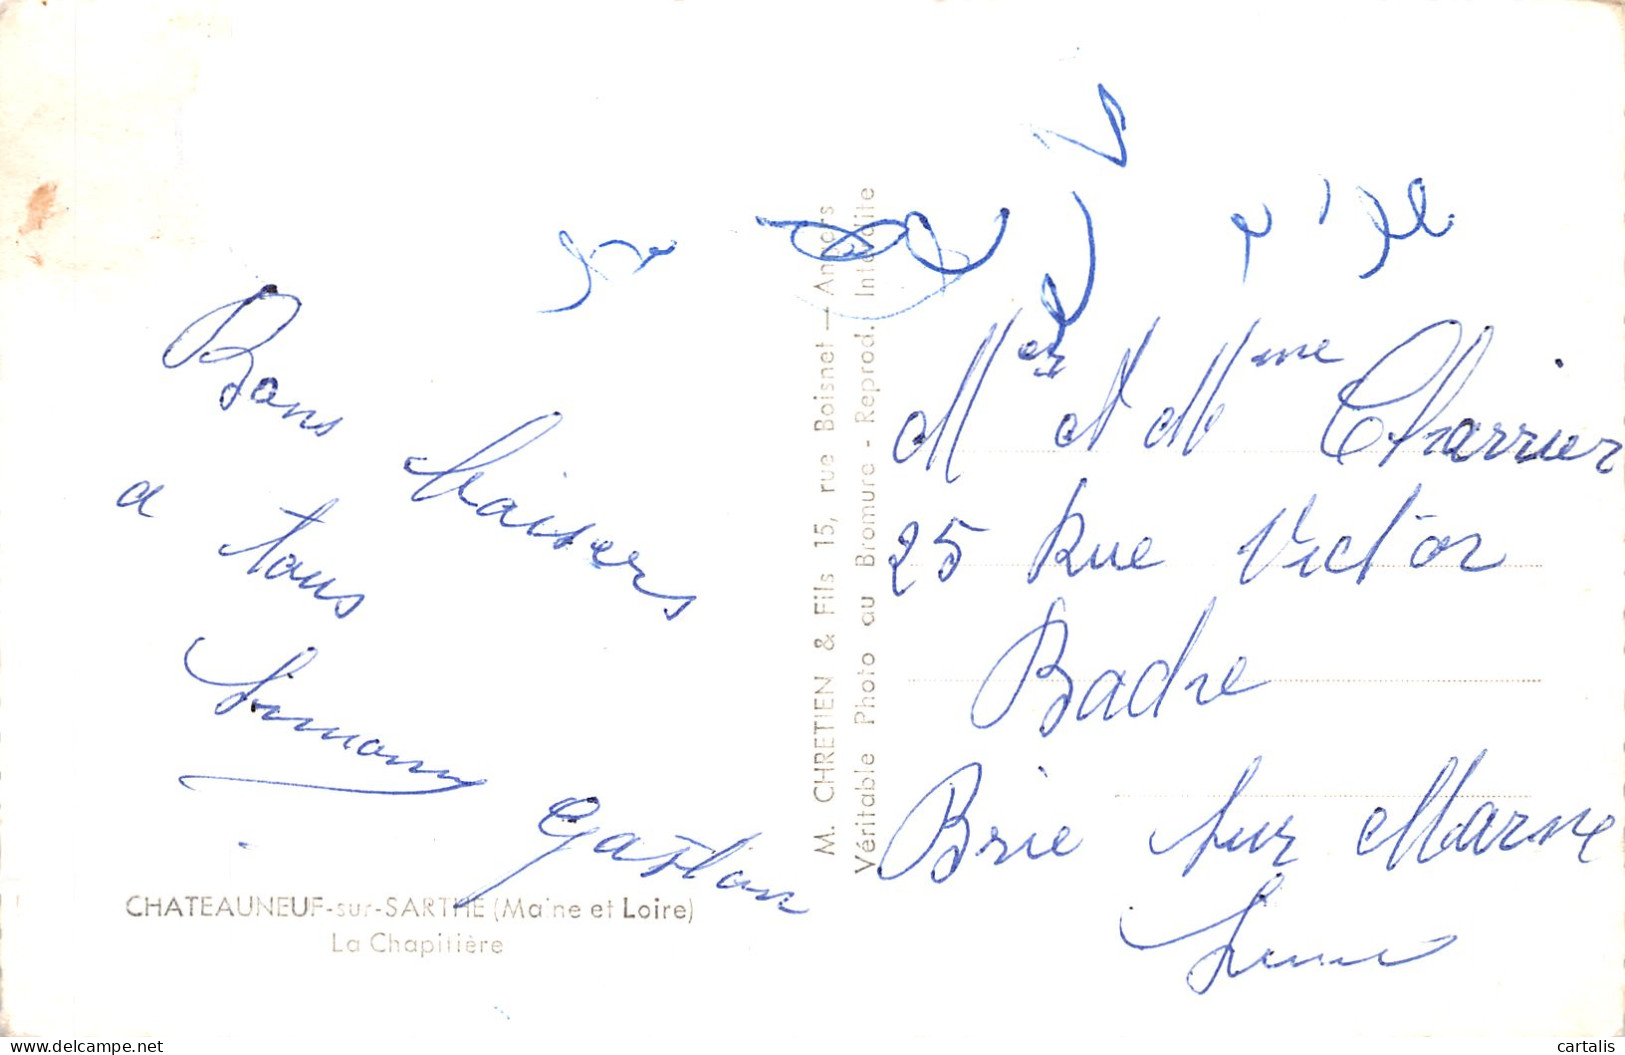 Bons baisers
a tous
Gaston
CHATEAUNEUF-sur-SARTHE (Maine et Loire)
La Chapitière
M. CHRETIEN & Fils 15, rue Boisnet — Angers
Véritable Photo au Bromure - Reprod. Interdite
Mer et Mme Charrier
25 Rue Victor
Badre
Brie sur Marne
Seine
delcampe.net
cartalis